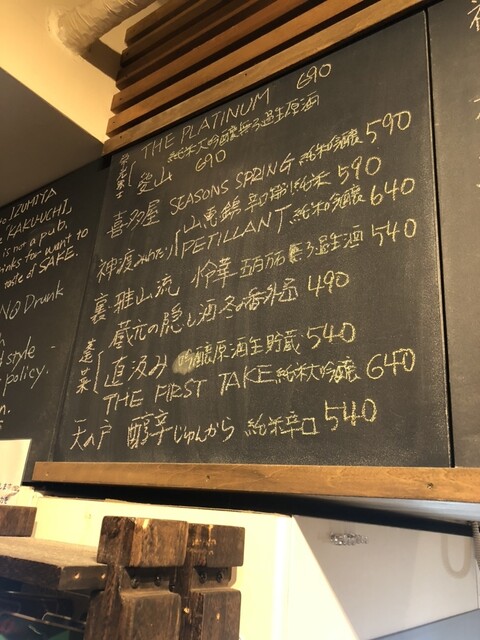 THE PLATINUM 690
純米大吟醸無ろ過生原酒
愛山 690
喜多屋 SEASONS SPRING 純米吟醸 590
神渡みわたり 山恵錦 辛口 純米 590
PETILLANT 純米吟醸 640
裏雅山流 怜華 無ろ過生酒 540
蔵元の隠し酒 冬の番外品 490
蓬莱 直汲み 吟醸原酒生貯蔵 540
THE FIRST TAKE 純米大吟醸 640
天の戸 醇辛じゅんから 純米辛口 540
IZUMIYA
"KAKU-UCHI
is not a pub.
drinks for want to
taste of SAKE.
NO Drunk
style
policy.